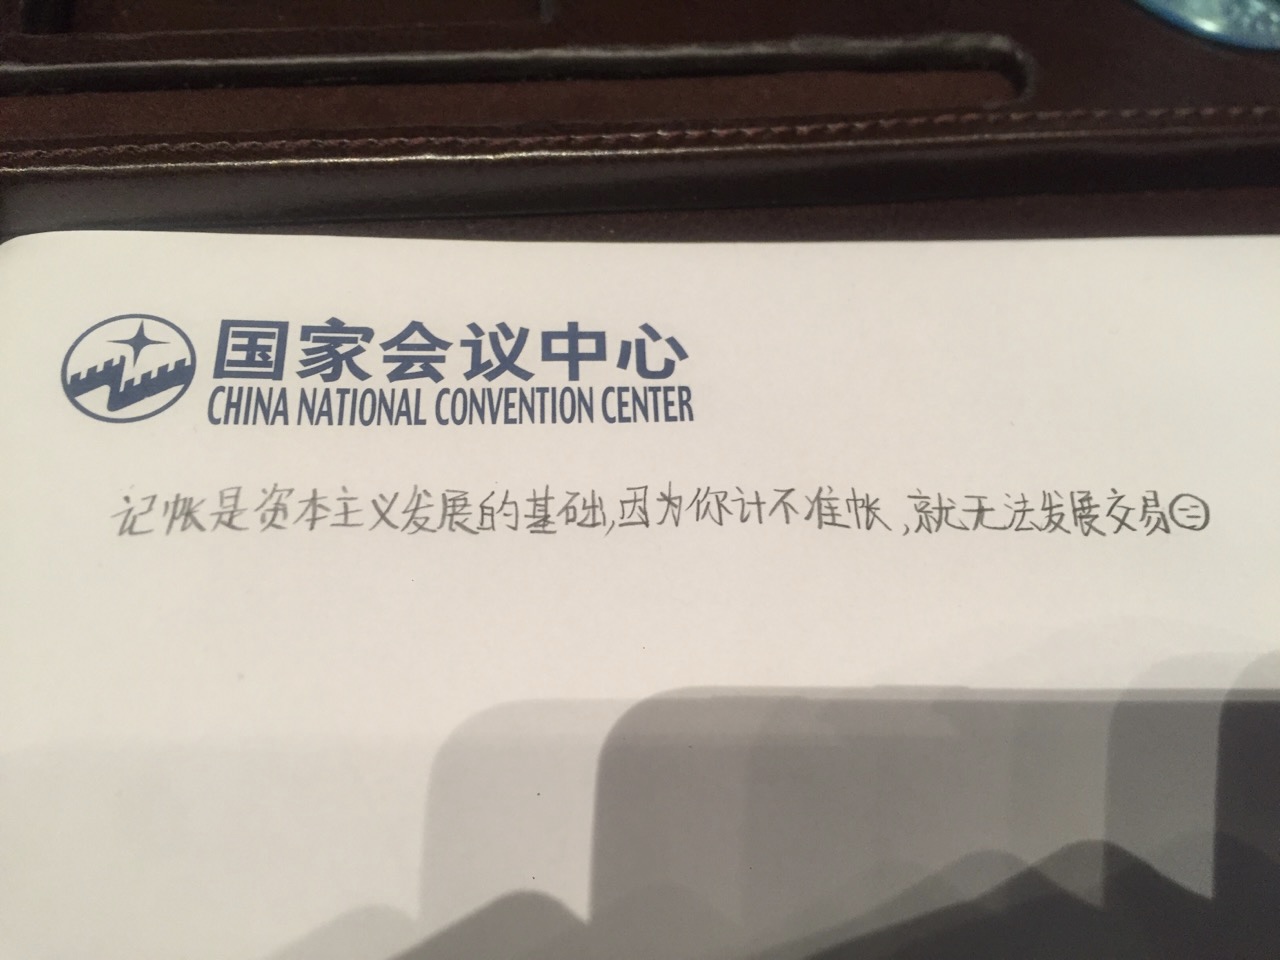 国家会议中心
CHINA NATIONAL CONVENTION CENTER
记帐是资本主义发展的基础,因为你计不准帐,就无法发展交易㊁